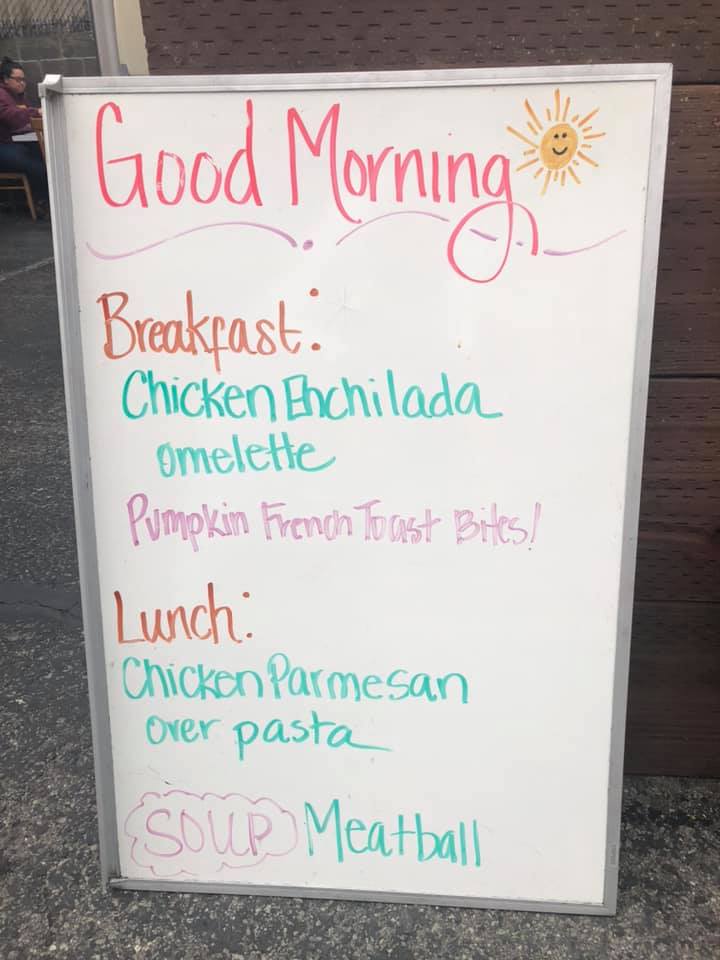 Good Morning
Breakfast:
Chicken Enchilada
omelette
Pumpkin French Toast Bites!
Lunch:
Chicken Parmesan
over pasta
SOUP Meatball